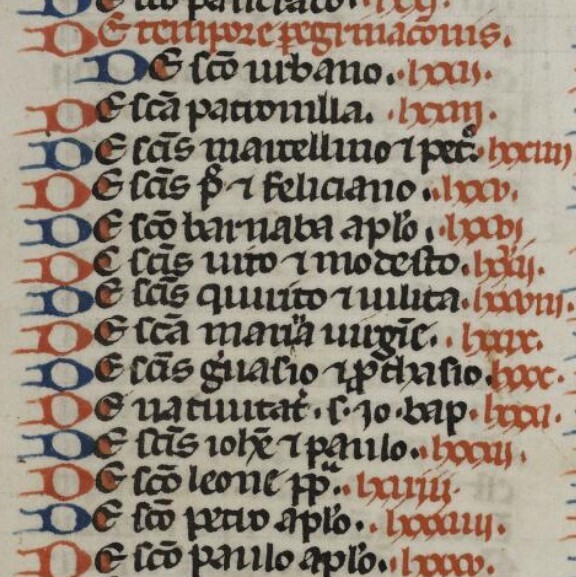 DE sco pancracio. lxxi.
DE tempore pegrinaconis.
DE sco urbano. lxxii.
DE sca patronilla. lxxiii.
DE scis marcellino ⁊ pet. lxxiiii
DE scis p̃ ⁊ feliciano. lxxv.
DE sco barnaba aplo. lxxvi
DE scis uito ⁊ modesto. lxxvii.
DE scis quirito ⁊ iulita. lxxviii.
DE sca maria uirgie. lxxix.
DE scis g̃uasio ⁊ p̃thasio. lxxx.
DE natiuitat̃. s. io. bap. lxxxi.
DE scis iohe ⁊ paulo. lxxxii.
DE sco leone pp. lxxxiii.
DE sco petro aplo. lxxxiiii.
DE sco paulo aplo. lxxxv.